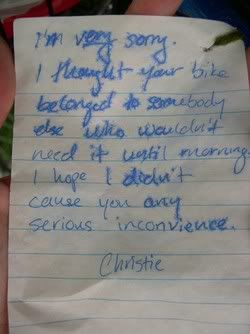 I'm very sorry.
I thought your bike
belonged to somebody
else who wouldn't
need it until morning.
I hope I didn't
cause you any
serious inconvience.
Christie